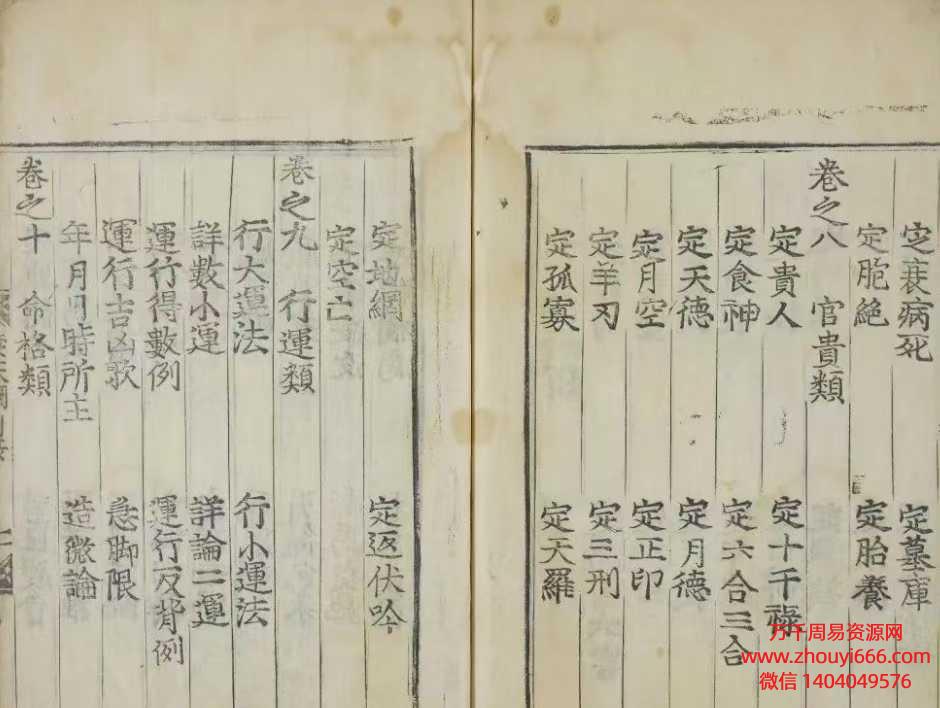 定衰病死 定墓庫
定胞絶 定胎養
卷之八 官貴類
定貴人 定十千祿
定食神 定六合三合
定天德 定月德
定月空 定正印
定羊刃 定三刑
定孤寡 定天羅
定地網 定返伏吟
定空亡
卷之九 行運類
行大運法 行小運法
詳數小運 詳論二運
運行得數例 運行反背例
運行吉凶歌 急脚限
年月日時所主 造微論
卷之十 命格類
万千周易资源网
www.zhouyi666.com
微信 1404049576